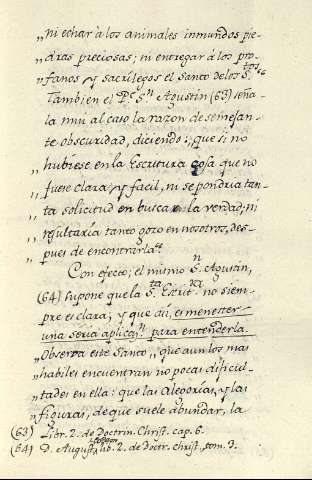 „ni echar à los animales inmundos pie-
„dras preciosas; ni entregar á los pro-
„fanos y sacrilegos el Santo de los S.tos“
Tambien el P.e S.n Agustin (63) seña-
la mui al caso la razon de semejan-
te obscuridad, diciendo: „que si no
„hubiese en la Escritura cosa que no
„fuese clara, y facil, ni se pondria tan-
„ta solicitud en buscar la verdad, ni
„resultaría tanto gozo en nosotros, des-
„pues de encontrarla.“
Con efecto; el mismo S.n Agustin,
(64) supone que la S.ta Escrit.ra no siem-
pre es clara; y que asi, es menester
una seria aplicac.n para entenderla.
„Observa este Santo, „que aun los mas
„habiles encuentran no pocas dificul-
„tades en ella: que las Alegorías, y las
„figuras, de que suele abundar, la
(63) Libr. 2. de Doctrin. Christ. cap. 6.
(64) D. August. lib. 2. de Doctr. christ., tom. 3.